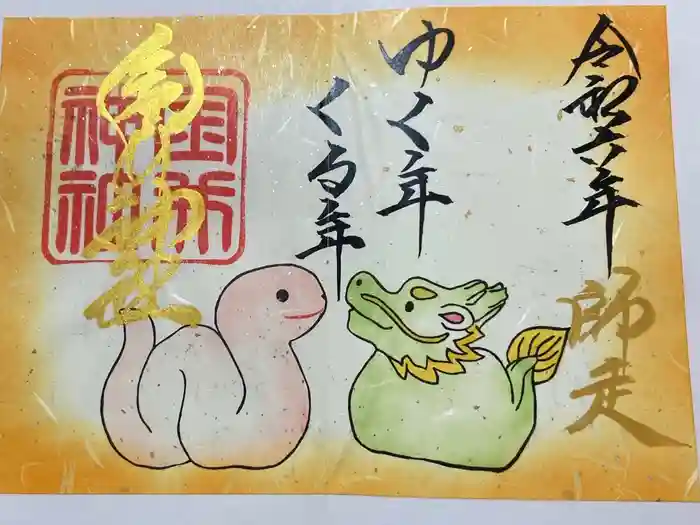 令和六年
師走
ゆく年
くる年